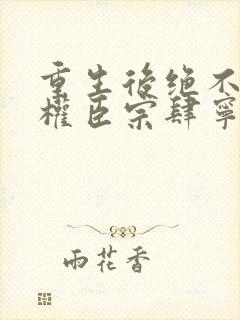 重生後绝不
權臣宗肆寧
雨花香